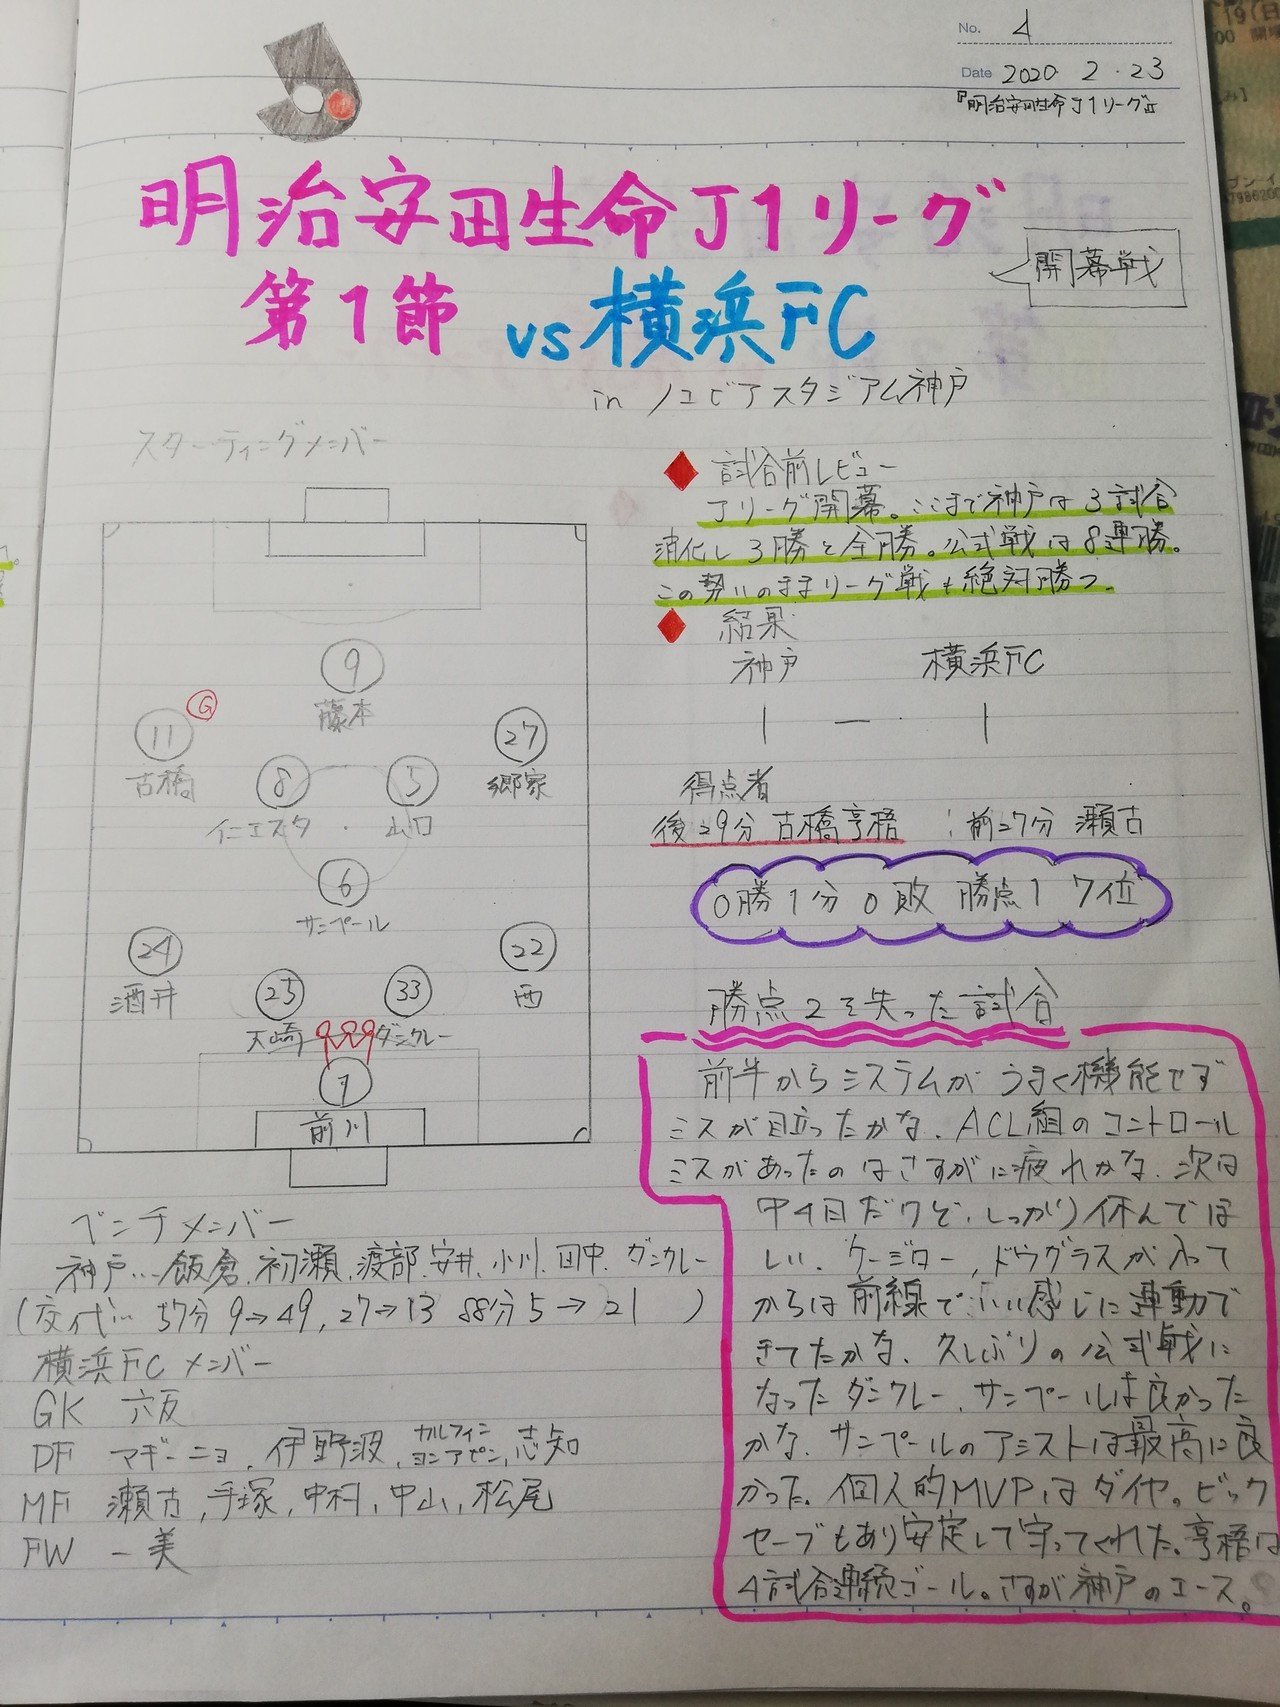 No. 4
Date 2020 2・23
『明治安田生命J1リーグ』
明治安田生命J1リーグ
開幕戦
第1節 vs 横浜FC
in ノエビアスタジアム神戸
スターティングメンバー
9
藤本
11
G
古橋
27
郷家
8
イニエスタ
5
山口
6
サンペール
24
酒井
22
西
25
大崎
33
ダンクレー
1
前川
ベンチメンバー
神戸…飯倉、初瀬、渡部、安井、小川、田中、ダンクレー
(交代… 57分 9→49, 27→13 88分 5→21 )
横浜FCメンバー
GK 六反
DF マギーニョ、伊野波、カルフィン ヨンアピン、志知
MF 瀬古, 手塚, 中村, 中山, 松尾
FW 一美
試合前レビュー
Jリーグ開幕。ここまで神戸は3試合
消化し3勝と全勝。公式戦は8連勝。
この勢いのままリーグ戦も絶対勝つ。
結果
神戸 横浜FC
1 — 1
得点者
後29分 古橋亨梧 : 前27分 瀬古
0勝1分0敗 勝点1 7位
勝点2を失った試合
前半からシステムがうまく機能せず
ミスが目立ったかな、ACL組のコントロール
ミスがあったのはさすがに疲れかな、次は
中4日だけど、しっかり休んでほ
しい、ケージロー、ドウグラスが入って
からは前線でいい感じに連動で
きてたかな、久しぶりの公式戦に
なったダンクレー、サンペールは良かった
かな、サンペールのアシストは最高に良
かった、個人的MVPはダイヤ。ビック
セーブもあり安定して守ってくれた。亨梧は
4試合連続ゴール。さすが神戸のエース。